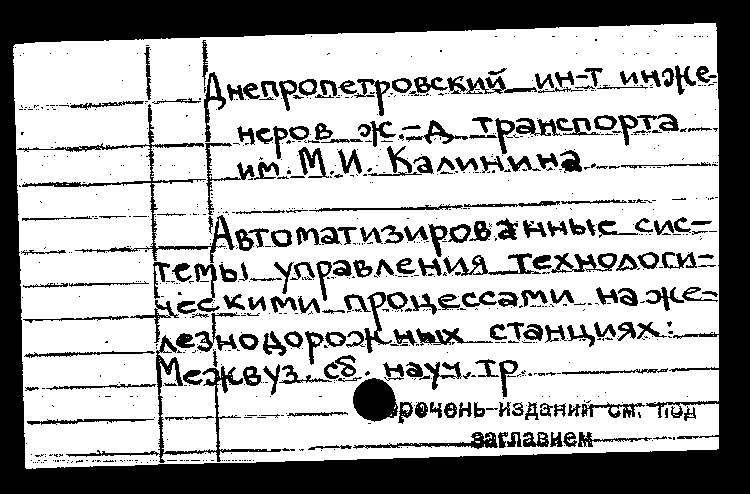 Днепропетровский ин-т инже-
неров ж.-д. транспорта
им. М.И. Калинина.
Автоматизированные сис-
темы управления технологи-
ческими процессами на же-
лезнодорожных станциях:
Межвуз. сб. науч. тр.
речень изданий см. под
заглавием